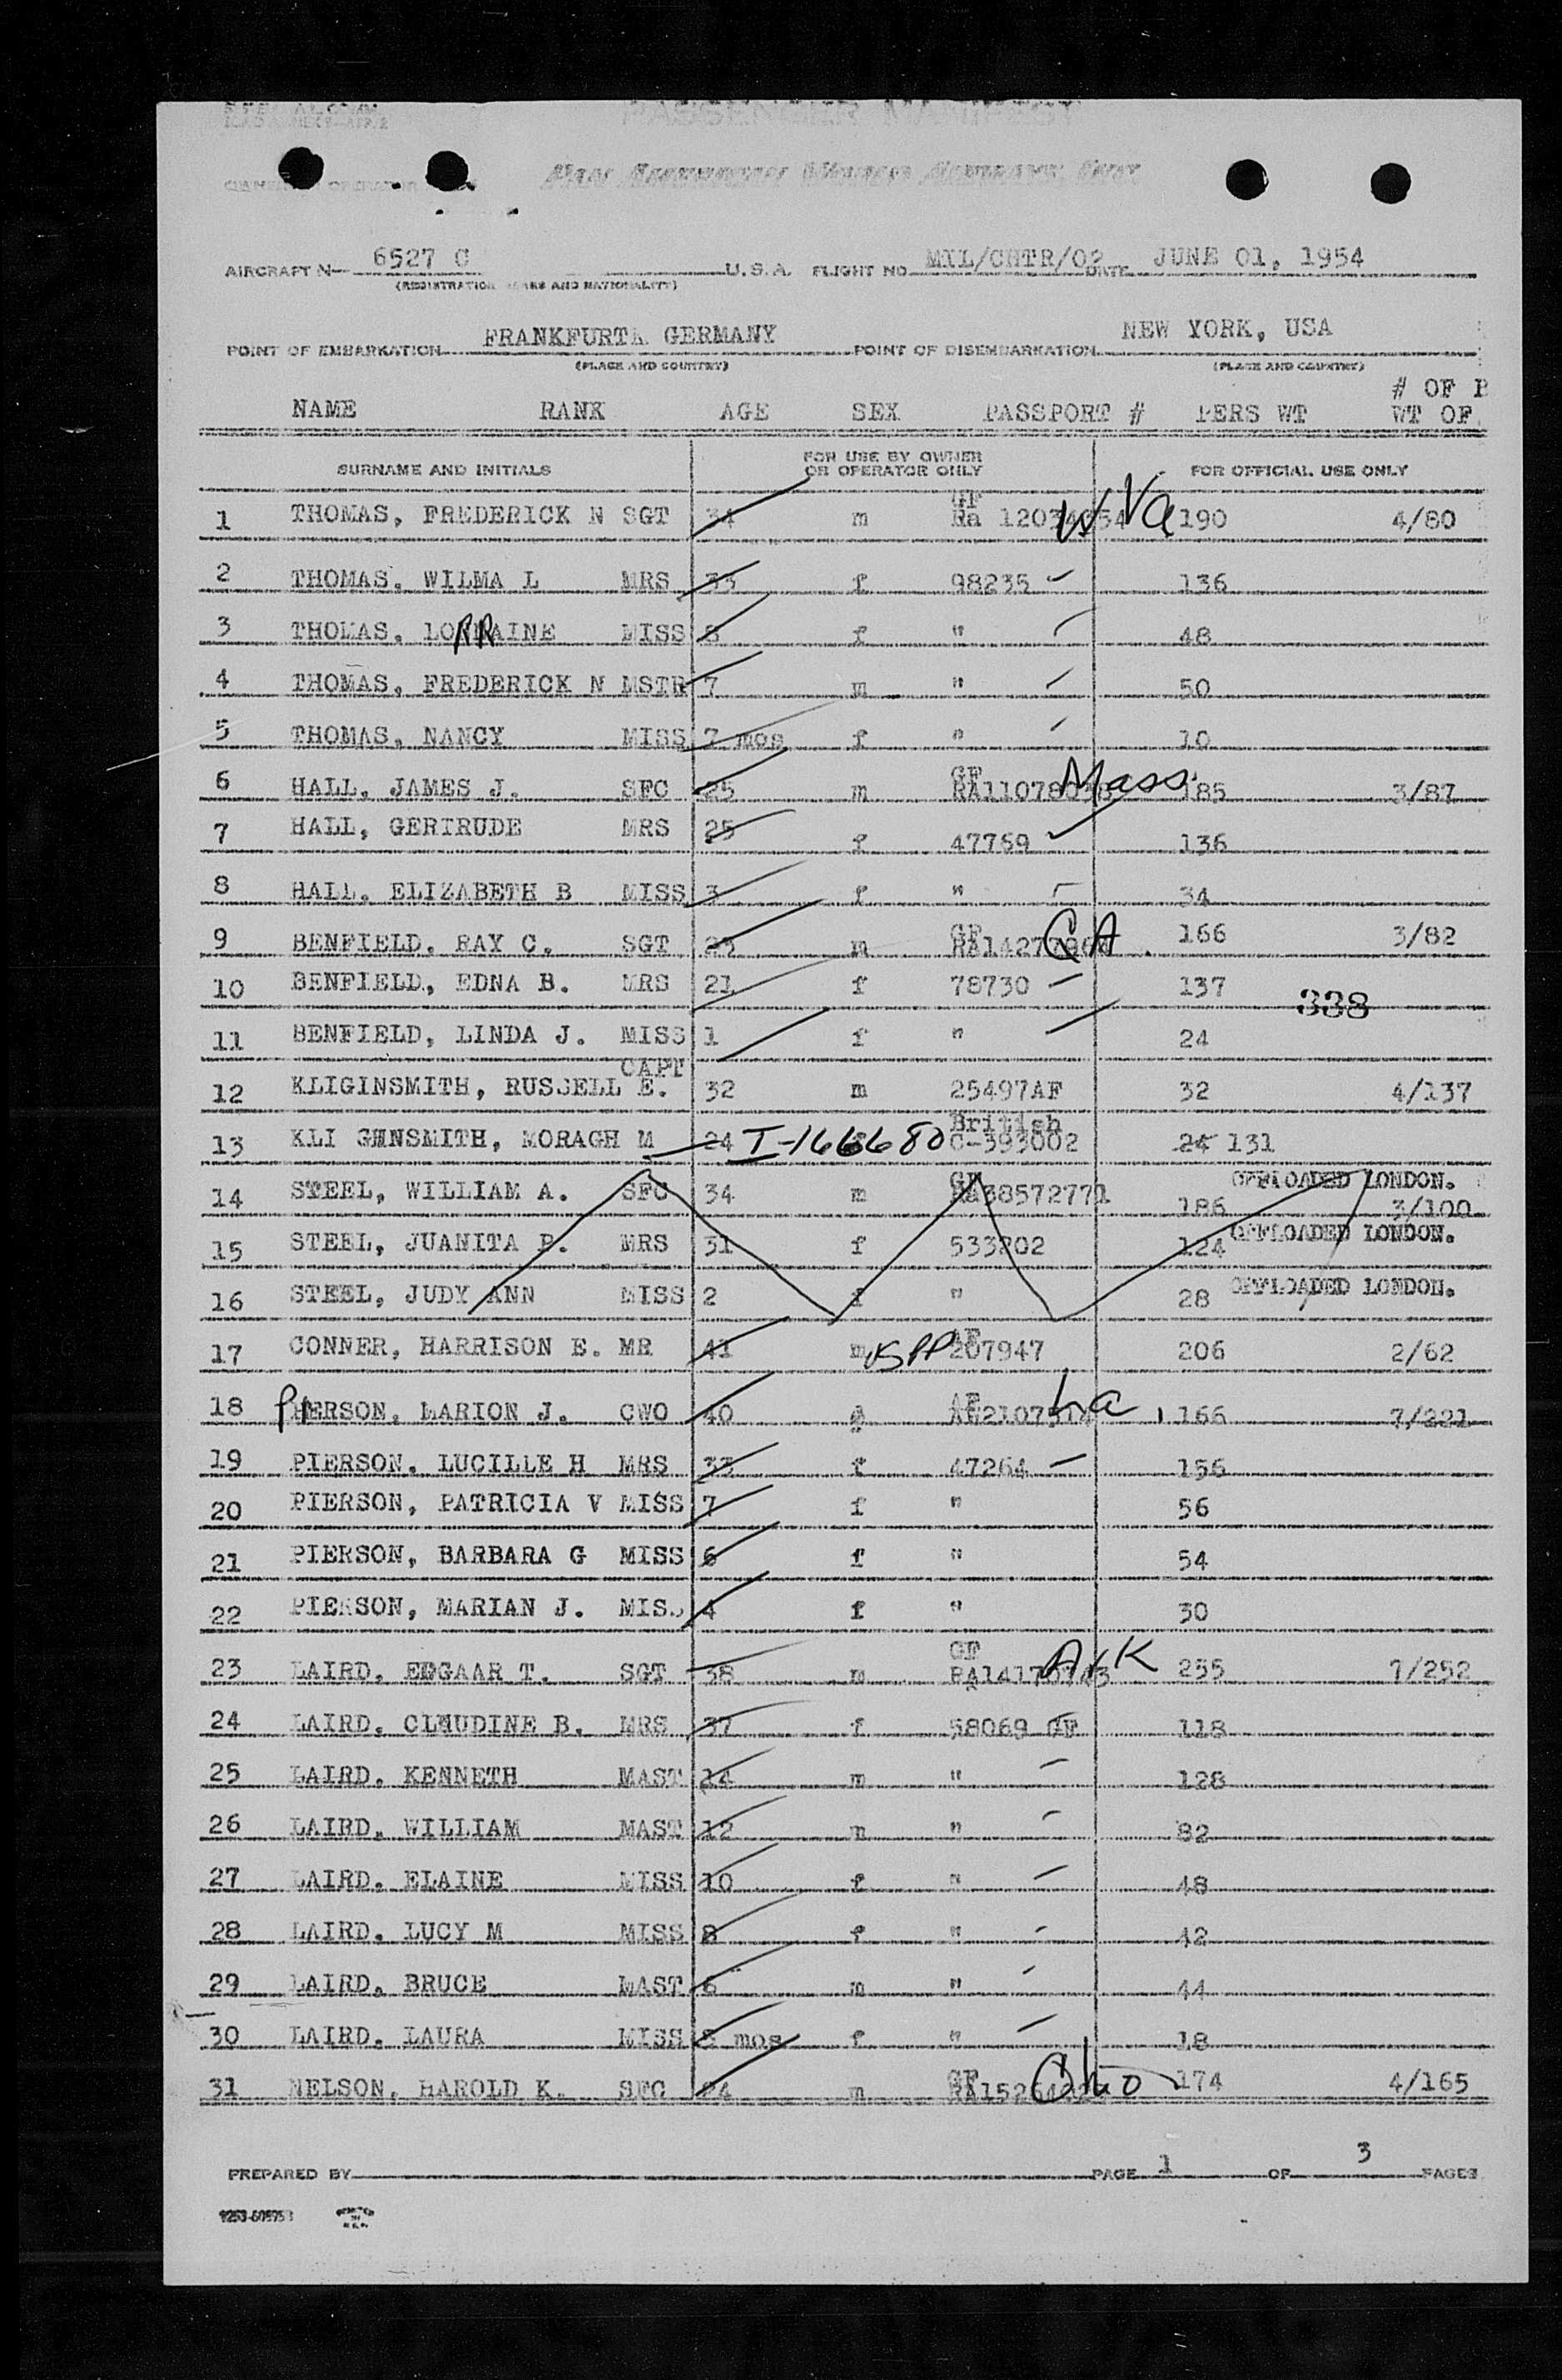 PASSENGER MANIFEST
Pan American World Airways Inc
OWNER OR OPERATOR
AIRCRAFT N 6527 C U.S.A. FLIGHT NO. MIL/CHTR/02 DATE JUNE 01, 1954
(REGISTRATION MARKS AND NATIONALITY)
POINT OF EMBARKATION FRANKFURT, GERMANY POINT OF DISEMBARKATION NEW YORK, USA
(PLACE AND COUNTRY) (PLACE AND COUNTRY)
# OF B
NAME RANK AGE SEX PASSPORT # PERS WT WT OF
SURNAME AND INITIALS FOR USE BY OWNER OR OPERATOR ONLY FOR OFFICIAL USE ONLY
1 THOMAS, FREDERICK N SGT 34 m GF Ra W Va 190 4/80
2 THOMAS, WILMA L MRS 33 f 98235 136
3 THOMAS, LORRAINE MISS 8 f " 48
4 THOMAS, FREDERICK N MSTR 7 m " 50
5 THOMAS, NANCY MISS 7 mos f " 10
6 HALL, JAMES J. SFC 25 m GF Mass. 185 3/87
7 HALL, GERTRUDE MRS 25 f 47759 136
8 HALL, ELIZABETH B MISS 3 f " 34
9 BENFIELD, RAY C. SGT 23 m GF GA 166 3/82
10 BENFIELD, EDNA B. MRS 21 f 78730 137
338
11 BENFIELD, LINDA J. MISS 1 f " 24
CAPT
12 KLIGINSMITH, RUSSELL E. 32 m 25497AF 32 4/137
13 KLI GENSMITH, MORAGH M 24 I-166680 British C-393002 24 131
14 STEEL, WILLIAM A. SFC 34 m GF Ra38572771 186 OFFLOADED LONDON. 3/100
15 STEEL, JUANITA P. MRS 31 f 533202 124 OFFLOADED LONDON.
16 STEEL, JUDY ANN MISS 2 f " 28 OFFLOADED LONDON.
17 CONNER, HARRISON E. MR 41 m USPP AF 207947 206 2/62
18 PIERSON, MARION J. CWO 40 m AF La 166 7/221
19 PIERSON, LUCILLE H MRS 33 f 47264 156
20 PIERSON, PATRICIA V MISS 7 f " 56
21 PIERSON, BARBARA G MISS 6 f " 54
22 PIERSON, MARIAN J. MISS 4 f " 30
23 LAIRD, EDGAAR T. SGT 38 m GF Ark 255 7/252
24 LAIRD, CLAUDINE B. MRS 37 f 58069 GF 118
25 LAIRD, KENNETH MAST 14 m " 128
26 LAIRD, WILLIAM MAST 12 m " 82
27 LAIRD, ELAINE MISS 10 f " 48
28 LAIRD, LUCY M MISS 8 f " 42
29 LAIRD, BRUCE MAST 6 m " 44
30 LAIRD, LAURA MISS 8 mos f " 18
31 NELSON, HAROLD K. SFC 24 m GF Ohio 174 4/165
PREPARED BY PAGE 1 OF 3 PAGES
PRINTED IN U.S.A.